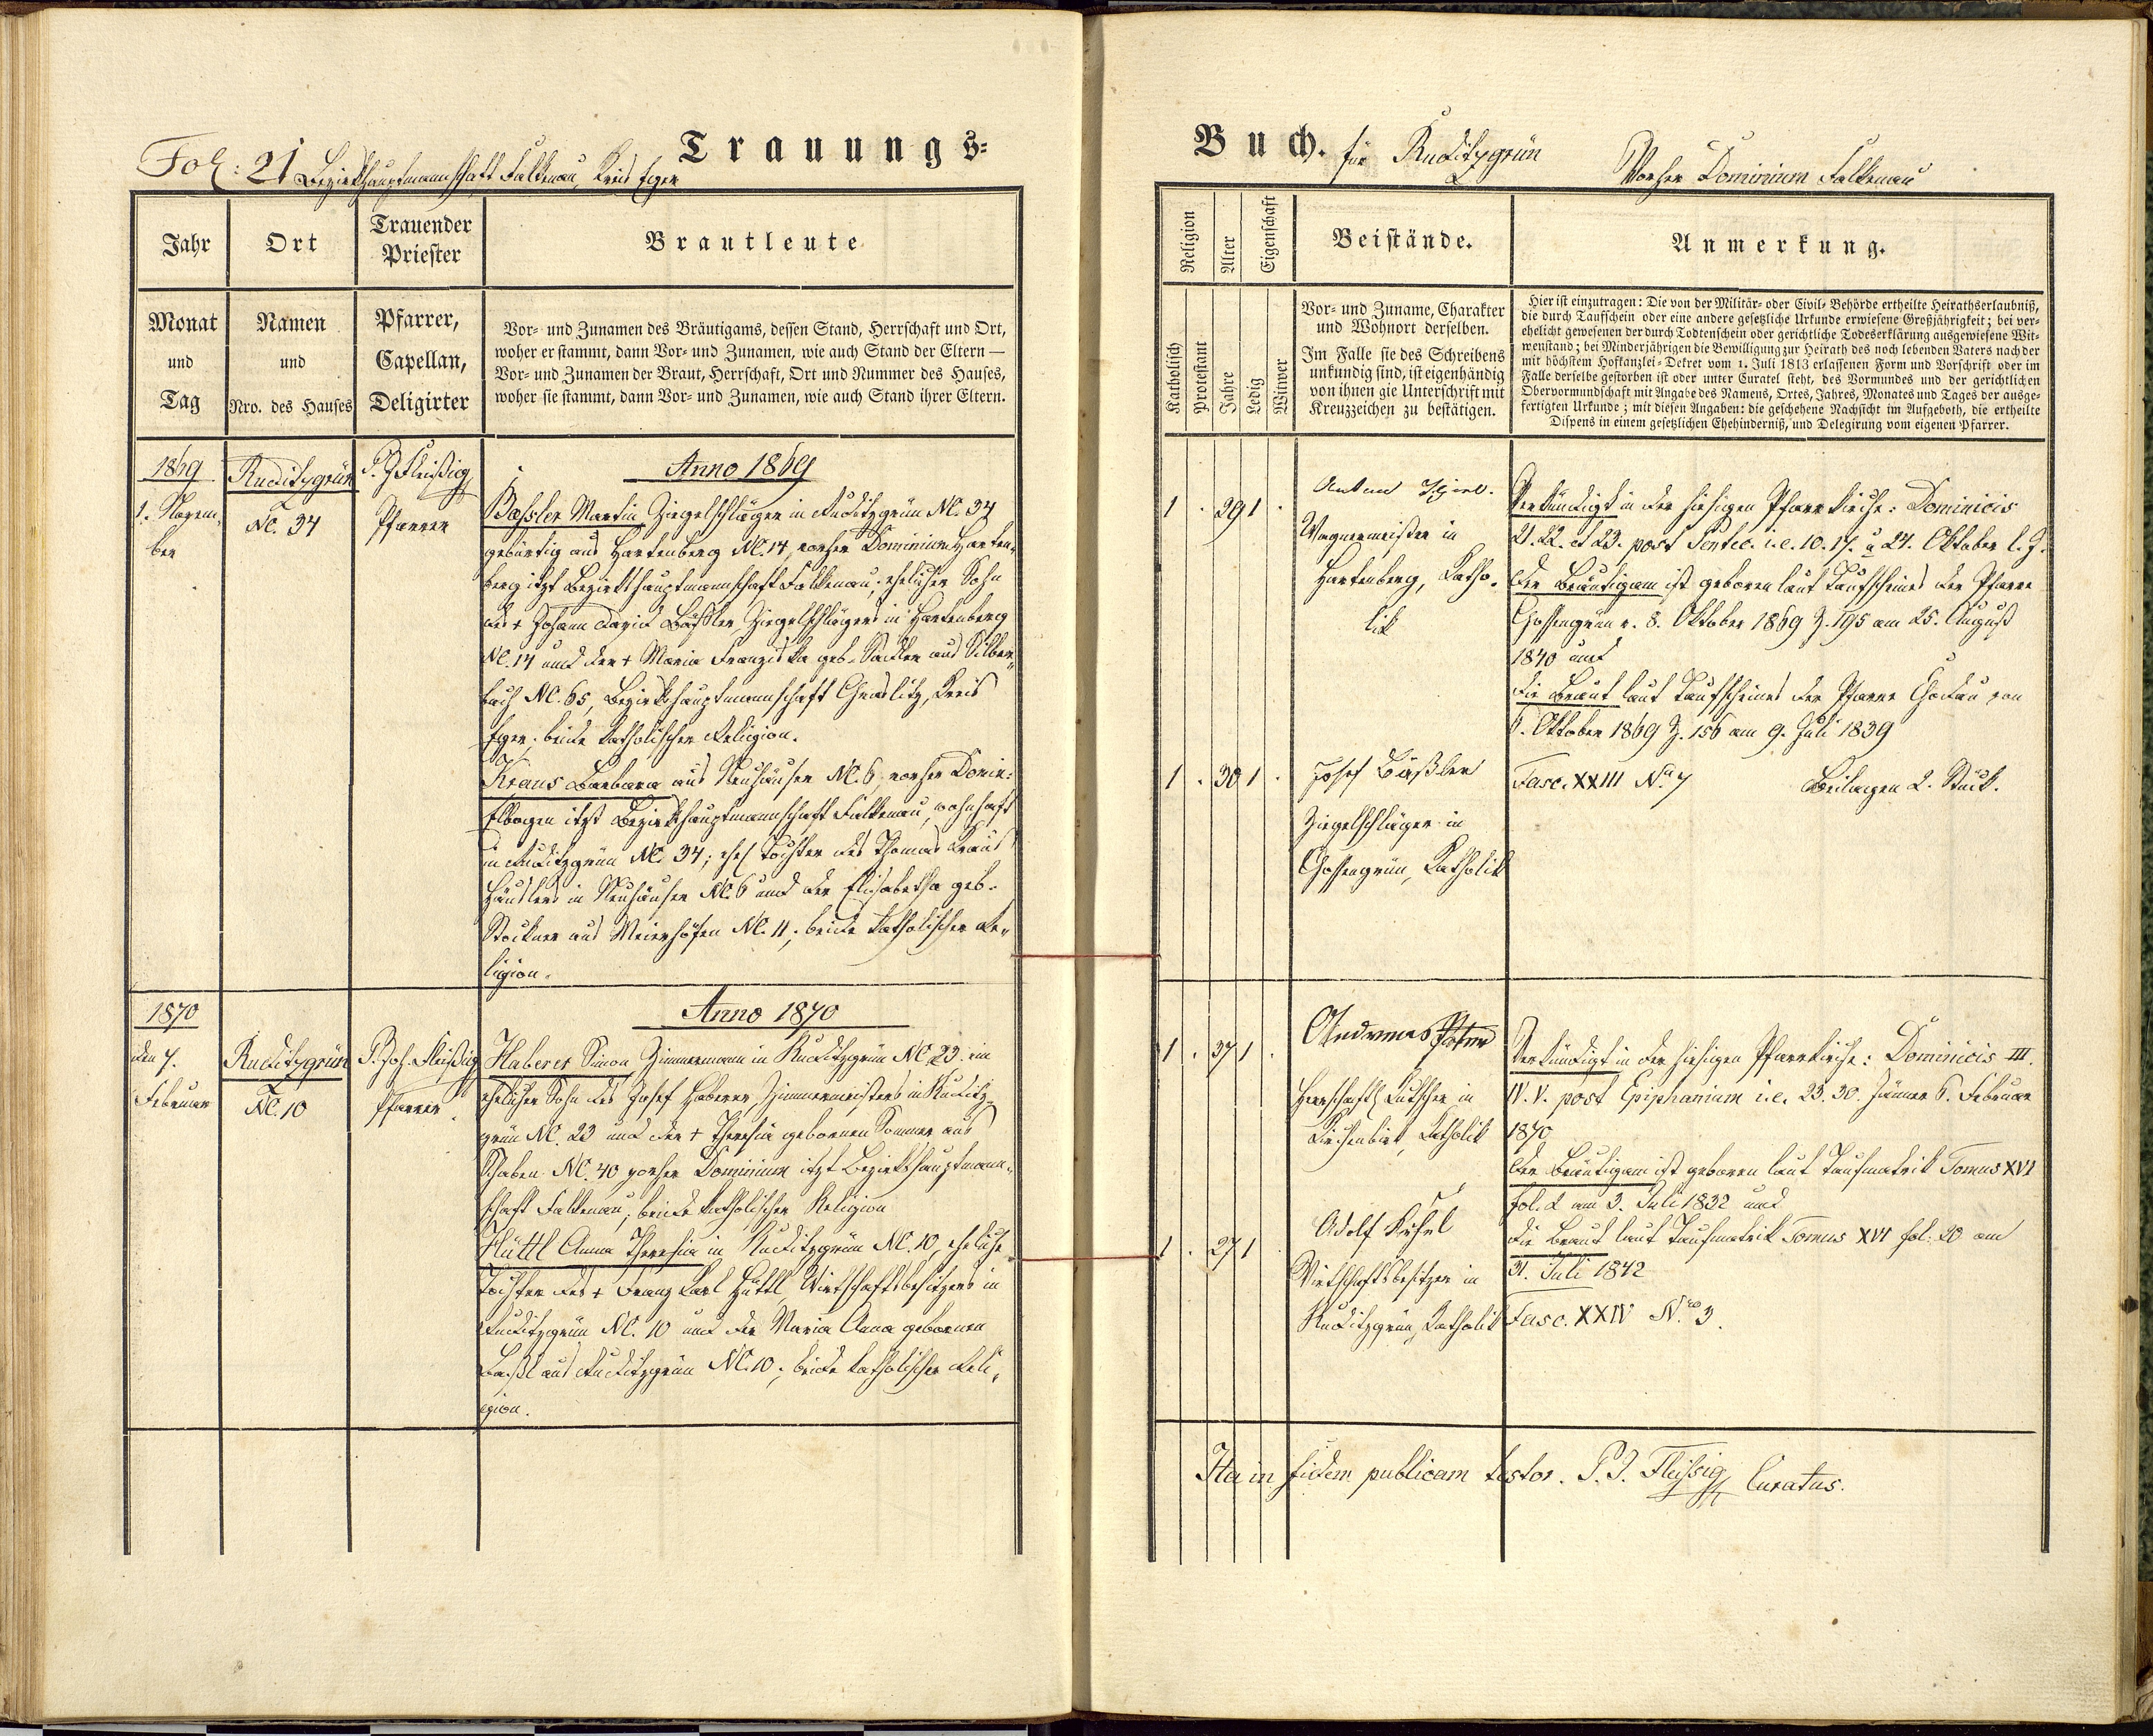 Trauungs-
Fol: 21 Bezirkshauptmannschaft Falkenau, Kreis Eger
Jahr
Ort
Trauender
Priester
Brautleute
Monat
und
Tag
Namen
und
Nro. des Hauses
Pfarrer,
Capellan,
Deligirter
Vor- und Zunamen des Bräutigams, dessen Stand, Herrschaft und Ort,
woher er stammt, dann Vor- und Zunamen, wie auch Stand der Eltern —
Vor- und Zunamen der Braut, Herrschaft, Ort und Nummer des Hauses,
woher sie stammt, dann Vor- und Zunamen, wie auch Stand ihrer Eltern.
1869
1. Novem-
ber
Ruditzgrün
NC. 34
P. J. Fleißig
Pfarrer
Anno 1869
Bassler Martin Ziegelschläger in Ruditzgrün NC. 34
gebürtig aus Hartenberg NC. 14, vorher Dominium Harten-
berg itzt Bezirkshauptmannschaft Falkenau; ehelicher Sohn
des + Johann David Bäßler Ziegelschlägers in Hartenberg
NC. 14 und der + Maria Franziska geb. Sattler aus Silber-
bach NC. 65, Bezirkshauptmannschaft Graslitz, Kreis
Eger, beide katholischer Religion.
Kraus Barbara aus Neuhäuser NC. 6, vorher Domin:
Elbogen itzt Bezirkshauptmannschaft Falkenau, wohnhaft
in Ruditzgrün NC. 34; ehel Tochter des Thomas Kraus
Häuslers in Neuhäuser NC. 6 und der Elisabetha geb.
Stockner aus Meierhöfen NC. 11; beide katholischer Re-
ligion.
1870
den 7.
Februar
Ruditzgrün
NC. 10
P. Joh. Fleißig
Pfarrer.
Anno 1870
Haberer Simon Zimmermann in Ruditzgrün NC 23. ein
ehelicher Sohn des Josef Haberer, Zimmermeisters in Ruditz-
grün NC. 23 und der + Theresia gebornen Sommer aus
Schaben NC. 40 vorher Dominium itzt Bezirkshauptmann-
schaft Falkenau; beide katholischer Religion
Hüttl Anna Theresia in Ruditzgrün NC. 10, eheliche
Tochter des + Franz Karl Hüttl, Wirtschaftsbesitzers in
Ruditzgrün NC. 10 und der Maria Anna gebornen
aus Ruditzgrün NC. 10; beide katholischer Reli-
gion.
Buch. für Ruditzgrün
Vorher Dominium Falkenau
Religion
Alter
Eigenschaft
Beistände.
Anmerkung.
Katholisch
Protestant
Jahre
Ledig
Witwer
Vor- und Zuname, Charakter
und Wohnort derselben.
Im Falle sie des Schreibens
unkundig sind, ist eigenhändig
von ihnen gie Unterschrift mit
Kreuzzeichen zu bestätigen.
Hier ist einzutragen: Die von der Militär- oder Civil- Behörde ertheilte Heirathserlaubniß,
die durch Taufschein oder eine andere gesetzliche Urkunde erwiesene Großjährigkeit; bei ver-
ehelicht gewesenen der durch Todtenschein oder gerichtliche Todeserklärung ausgewiesene Wit-
wenstand; bei Minderjährigen die Bewilligung zur Heirath des noch lebenden Vaters nach der
mit höchstem Hofkanzlei-Dekret vom 1. Juli 1813 erlassenen Form und Vorschrift oder im
Falle derselbe gestorben ist oder unter Curatel steht, des Vormundes und der gerichtlichen
Obervormundschaft mit Angabe des Namens, Ortes, Jahres, Monates und Tages der ausge-
fertigten Urkunde; mit diesen Angaben: die geschehene Nachsicht im Aufgeboth, die ertheilte
Dispens in einem gesetzlichen Ehehinderniß, und Delegirung vom eigenen Pfarrer.
1 . 29 1 .
Anton
Wagnermeister in
Hartenberg, Katho-
lik
Verkündigt in der hiesigen Pfarrkirche: Dominicis
21. 22. et 23. post Pentec. i.e. 10. 17. u 24. Oktober l. J.
Der Bräutigam ist geboren laut Taufscheines der Pfarre
Gossengrün v. 8. Oktober 1869 Z. 195 am 25. August
1840 und
die Braut laut Taufscheines der Pfarre Chodau von
6. Oktober 1869 Z. 156 am 9. Juli 1839
1 . 30 1 .
Josef Bäßler
Ziegelschläger in
Gossengrün, Katholik
Fasc. XXIII No. 7
Beilagen 2. Stück.
1 . 37 1 .
Andreas
Herrschaftl Kutscher in
Kirchenbirk, Katholik
Verkündigt in der hiesigen Pfarrkirche: Dominicis III.
IV. V. post Epiphanium i.e. 23. 30. Jänner 6. Februar
1870
Der Bräutigam ist geboren laut Taufmatrik Tomus XVI
fol. 2 am 3. Juli 1832 und
die Braut laut Taufmatrik Tomus XVI fol. 20 am
31. Juli 1842
1 . 27 1
Adolf
Wirtschaftsbesitzer in
Ruditzgrün, Katholik
Fasc. XXIV Nro 3.
Ita in fidem publicam testor. P. J. Fleissig Curatus.